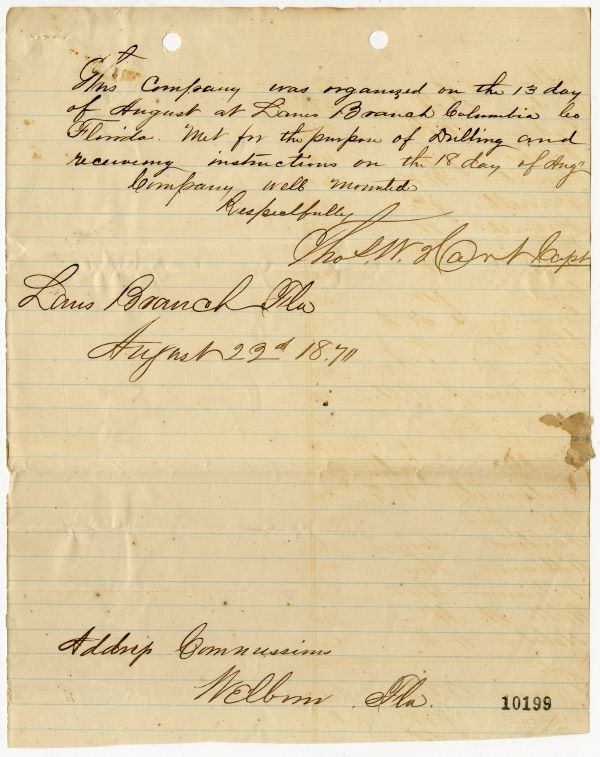 This Company was organized on the 13 day
of August at Lanes Branch Columbia Co
Florida. Met for the purpose of Drilling and
receiving instructions on the 18 day of Aug
Company well mounted
Respectfully
Tho S. W. Hart Capt
Lanes Branch Fla
August 22d 1870
Address Commissions
Welborn Fla.
10199